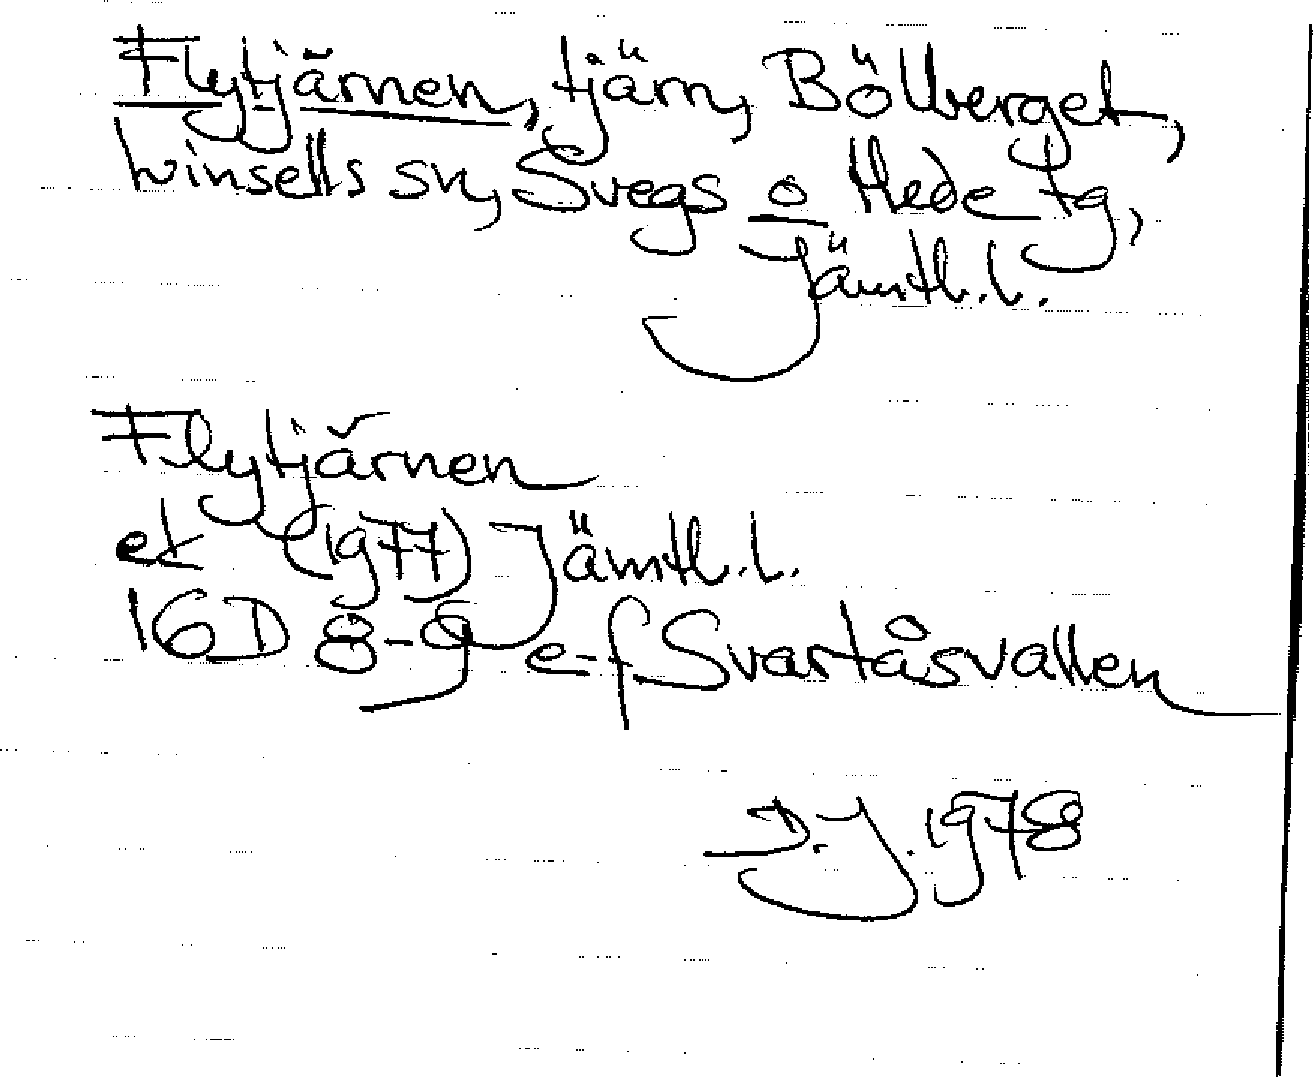 Flytjärnen, tjärn, Böllberget,
Linsells sn, Svegs o Hede tg,
Jämtl.l.
Flytjärnen
ek (1977) Jämtl.l.
16D 8-9 e-f Svartåsvallen
D.J. 1978